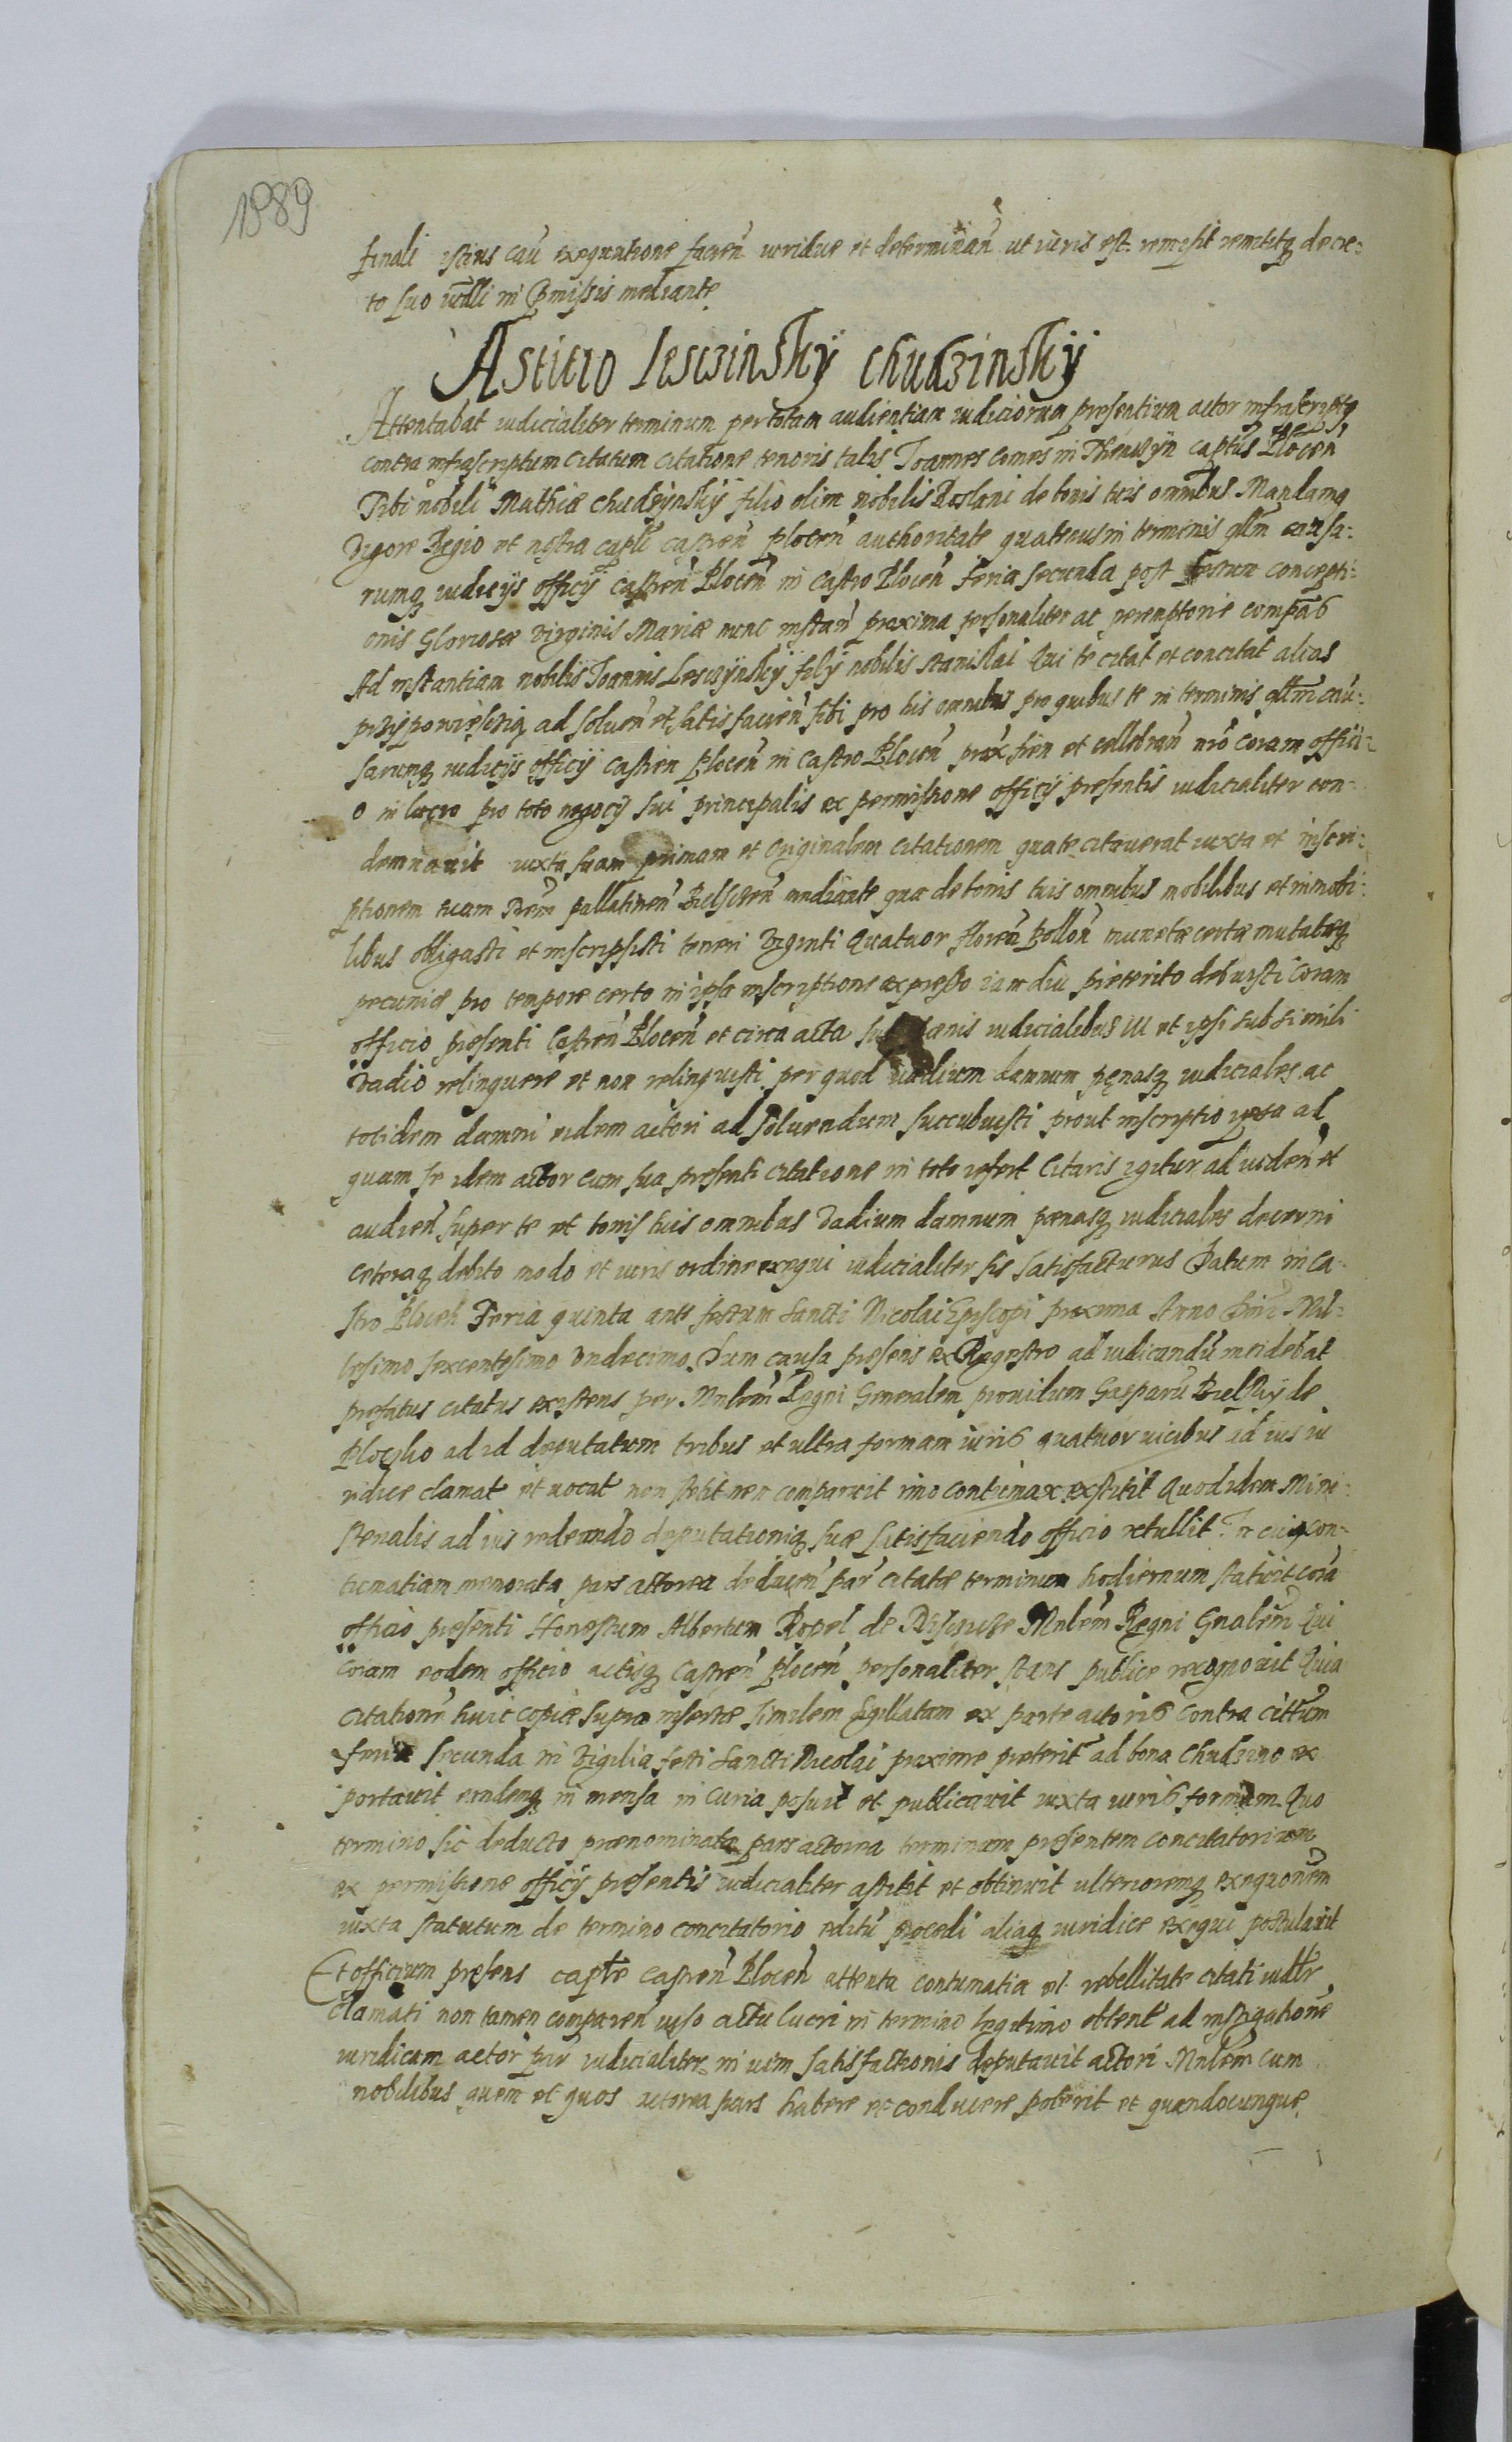 1889
finali istius cau exequutione facien iuridice et determinan ut iuris est remisit remititq decre-
to suo iudlli in pmissis mediante
Astitio Lesczinsky chudzinsky
Attentabat iudicialiter terminum per totam audientiam iudiciorum presentium actor infrascriptq
contra infrascriptum citatum citatione tenoris talis Joannes Comes in Thenczyn captus Plocen
Tibi nobili Mathiæ chudzÿnskÿ filio olim nobilis Roslani de bonis tuis omnibus Mandamq
Vigore Regio et nostra captli castren Plocen authoritate quatenus in terminis qllm causa-
rumq iudicijs officÿ castren Plocen in castro Plocen Feria secunda post festum concepti-
onis Gloriosæ Virginis Mariæ nunc instan proxima personaliter ac peremptorie compas
Ad instantiam nobilis Joannis Lesczÿnskÿ filÿ nobilis stanislai Qui te citat et concitat alias
ad soluen et satisfacien sibi pro his omnibus pro quibus te in terminis qllm cau-
sarumq iudicijs officÿ castren Plocen in castro Plocen prox fien et cellebran nro coram offici-
o in lucro pro toto negocÿ sui principalis ex permissione officÿ presentis iudicialiter con-
demnauit iuxta suam primam et originalem citationem qua te citauerat iuxta et inscri-
ptionem tuam Trem pallatinen Bielscen mediante qua de bonis tuis omnibus mobilibus et immobi-
libus obligasti et inscripsisti teneri Viginti Quatuor floren Pollon munetæ certæ mutabq
pecuniæ pro tempore certo in ipsa inscriptione expresso iam diu preterito debuisti coram
officio presenti Castren Plocen et circa acta sub pænis iudicialibus iii et ipsi sub simili
Vadio relinquere et non relinquisti per quod uadium damnum pęnasq iudiciales ac
totidem damni eidem actori ad soluendum succubuisti prout inscriptio ipsa ad
quam se idem actor cum sua presenti citatione in toto refert Citaris igitur ad uiden et
audien super te et bonis tuis omnibus Vadium damnum pænasq iudiciales decerni
ceteraq debito modo et iuris ordine exequi iudicialiter sis satisfacturus Datum in Ca-
stro Plocen Feria quinta ante festum Sancti Nicolai Episcopi proxima Anno Dni Mil-
lesimo sexcentesimo Vndecimo Dum causa presens ex Regestro ad iudicandu incidebat
prefatus citatus existens per Mnlem Regni Generalem prouidum Gasparu Bielskÿ de
Ploczko ad id deputatum tribus et ultra formam iuris quatuor uicibus ad ius iu
ridice clamat et uocat non stetit nec comparuit imo contumax exstitit Quod idem Mini-
sterialis ad ius redeundo deputationiq suæ satisfaciendo officio retullit In cuiq con-
tumatiam memorata pars actorea deducen par citatæ terminum hodiernum statuit cora
officio presenti Honestum Albertum Ropel de Mnlem Regni Gnalem Qui
Coram eodem officio actisq Castren Plocen personaliter stans publice recognouit Quia
citatione huic copiæ supra insertæ similem sigillatam ex parte actoris contra cittum
feria secunda in Vigilia festi Sancti Nicolai proxime preterit ad bona Chudzino ex
portauit eandemq in mensa in Curia posuit et publicauit iuxta iuris formam Quo
termino sic deducto prænominata pars actorea terminum presentem concitatorium
ex permissione officÿ presentis iudicialiter astitit et obtinuit ulterioremq exequonem
iuxta statutum de termino concitatorio editu procedi aliaq iuridice exequi postulauit
Et officium presens capte castren Plocen attenta contumatia et rebellitate citati iudltr
clamati non tamen comparen uiso actu lucri in termino legitimo obtent ad instigatione
iuridicam actor par iudicialiter in uim satisfactionis deputauit actori Mnlem cum
nobilibus quem et quos actorea pars habere et conducere poterit et quandocunque